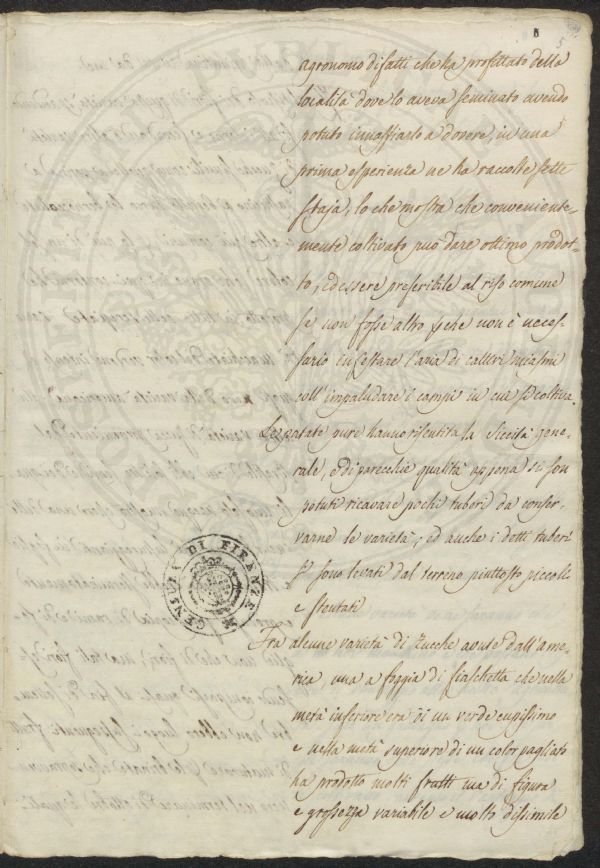 5
agronomo difatti che ha profittato della
località dove lo aveva seminato avendo
potuto innaffiarlo a dovere, in una
prima esperienza ne ha raccolte sette
staja, lo che mostra che conveniente-
mente coltivato può dare ottimo prodot-
to, ed essere preferibile al riso comune
se non fosse altro perche non è neces-
sario infestare l'aria di cattivi miasmi
coll'impaludare i campi in cui si coltiva.
Le patate pure hanno risentita la siccità gene-
rale, e di parecchie qualità appena si son
potuti ricavare pochi tuberi da conser-
varne le varietà, ed anche i detti tuberi
si sono levati dal terreno piuttosto piccoli
e stentati
Fra alcune varietà di Zucche avute dall'ame-
rica, una a foggia di fiaschetta che nella
metà inferiore era di un verde cupissimo
e nella metà superiore di un color pagliato
ha prodotto molti frutti ma di figura
e grossezza variabile e molto dissimile
GENIO DI FIRENZE